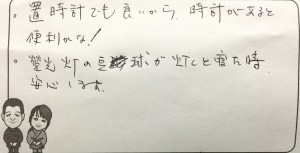 ・置時計でも良いから、時計があると
便利かな!
・螢光灯の豆球が灯くと寝た時
安心します。